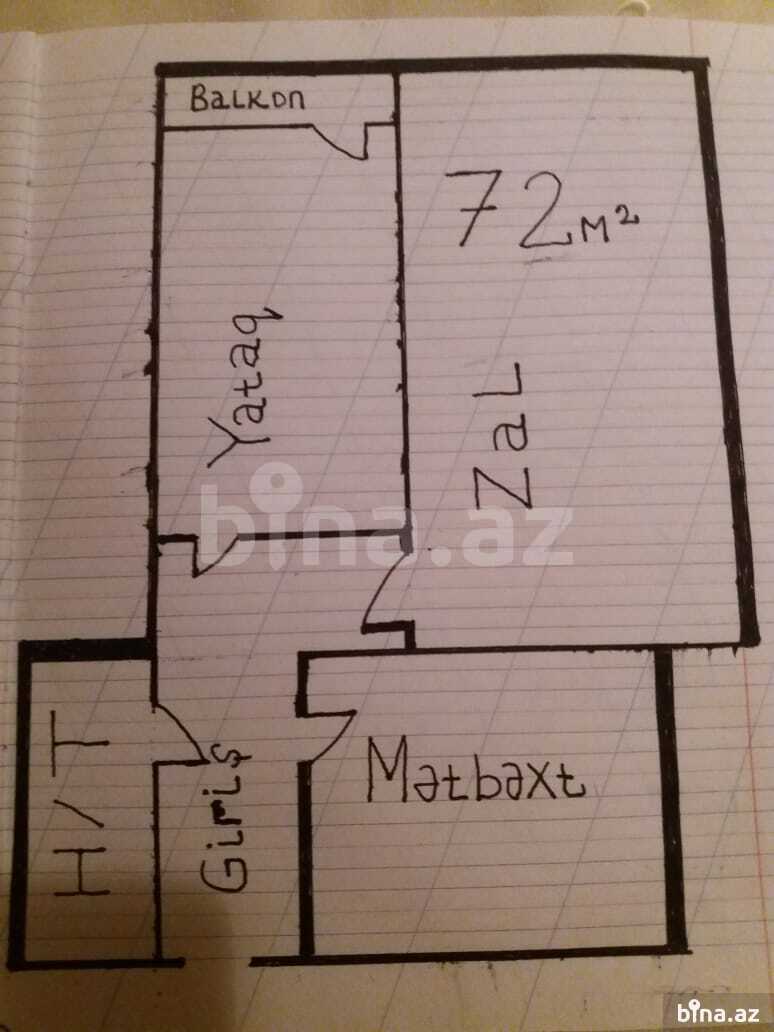 Balkon
72 м²
Yataq
Zal
bina.az
H/T
Giriş
Mətbəxt
bina.az